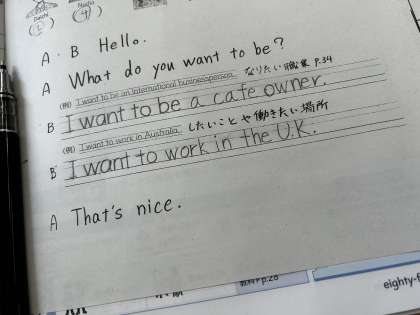 Daichi
Nadia
A. B Hello.
A What do you want to be?
(例) I want to be an international businessperson. なりたい職業 P.34
B I want to be a cafe owner.
(例) I want to work in Australia. したいことや働きたい場所
B I want to work in the U.K.
A That's nice.
p.28
eighty-f